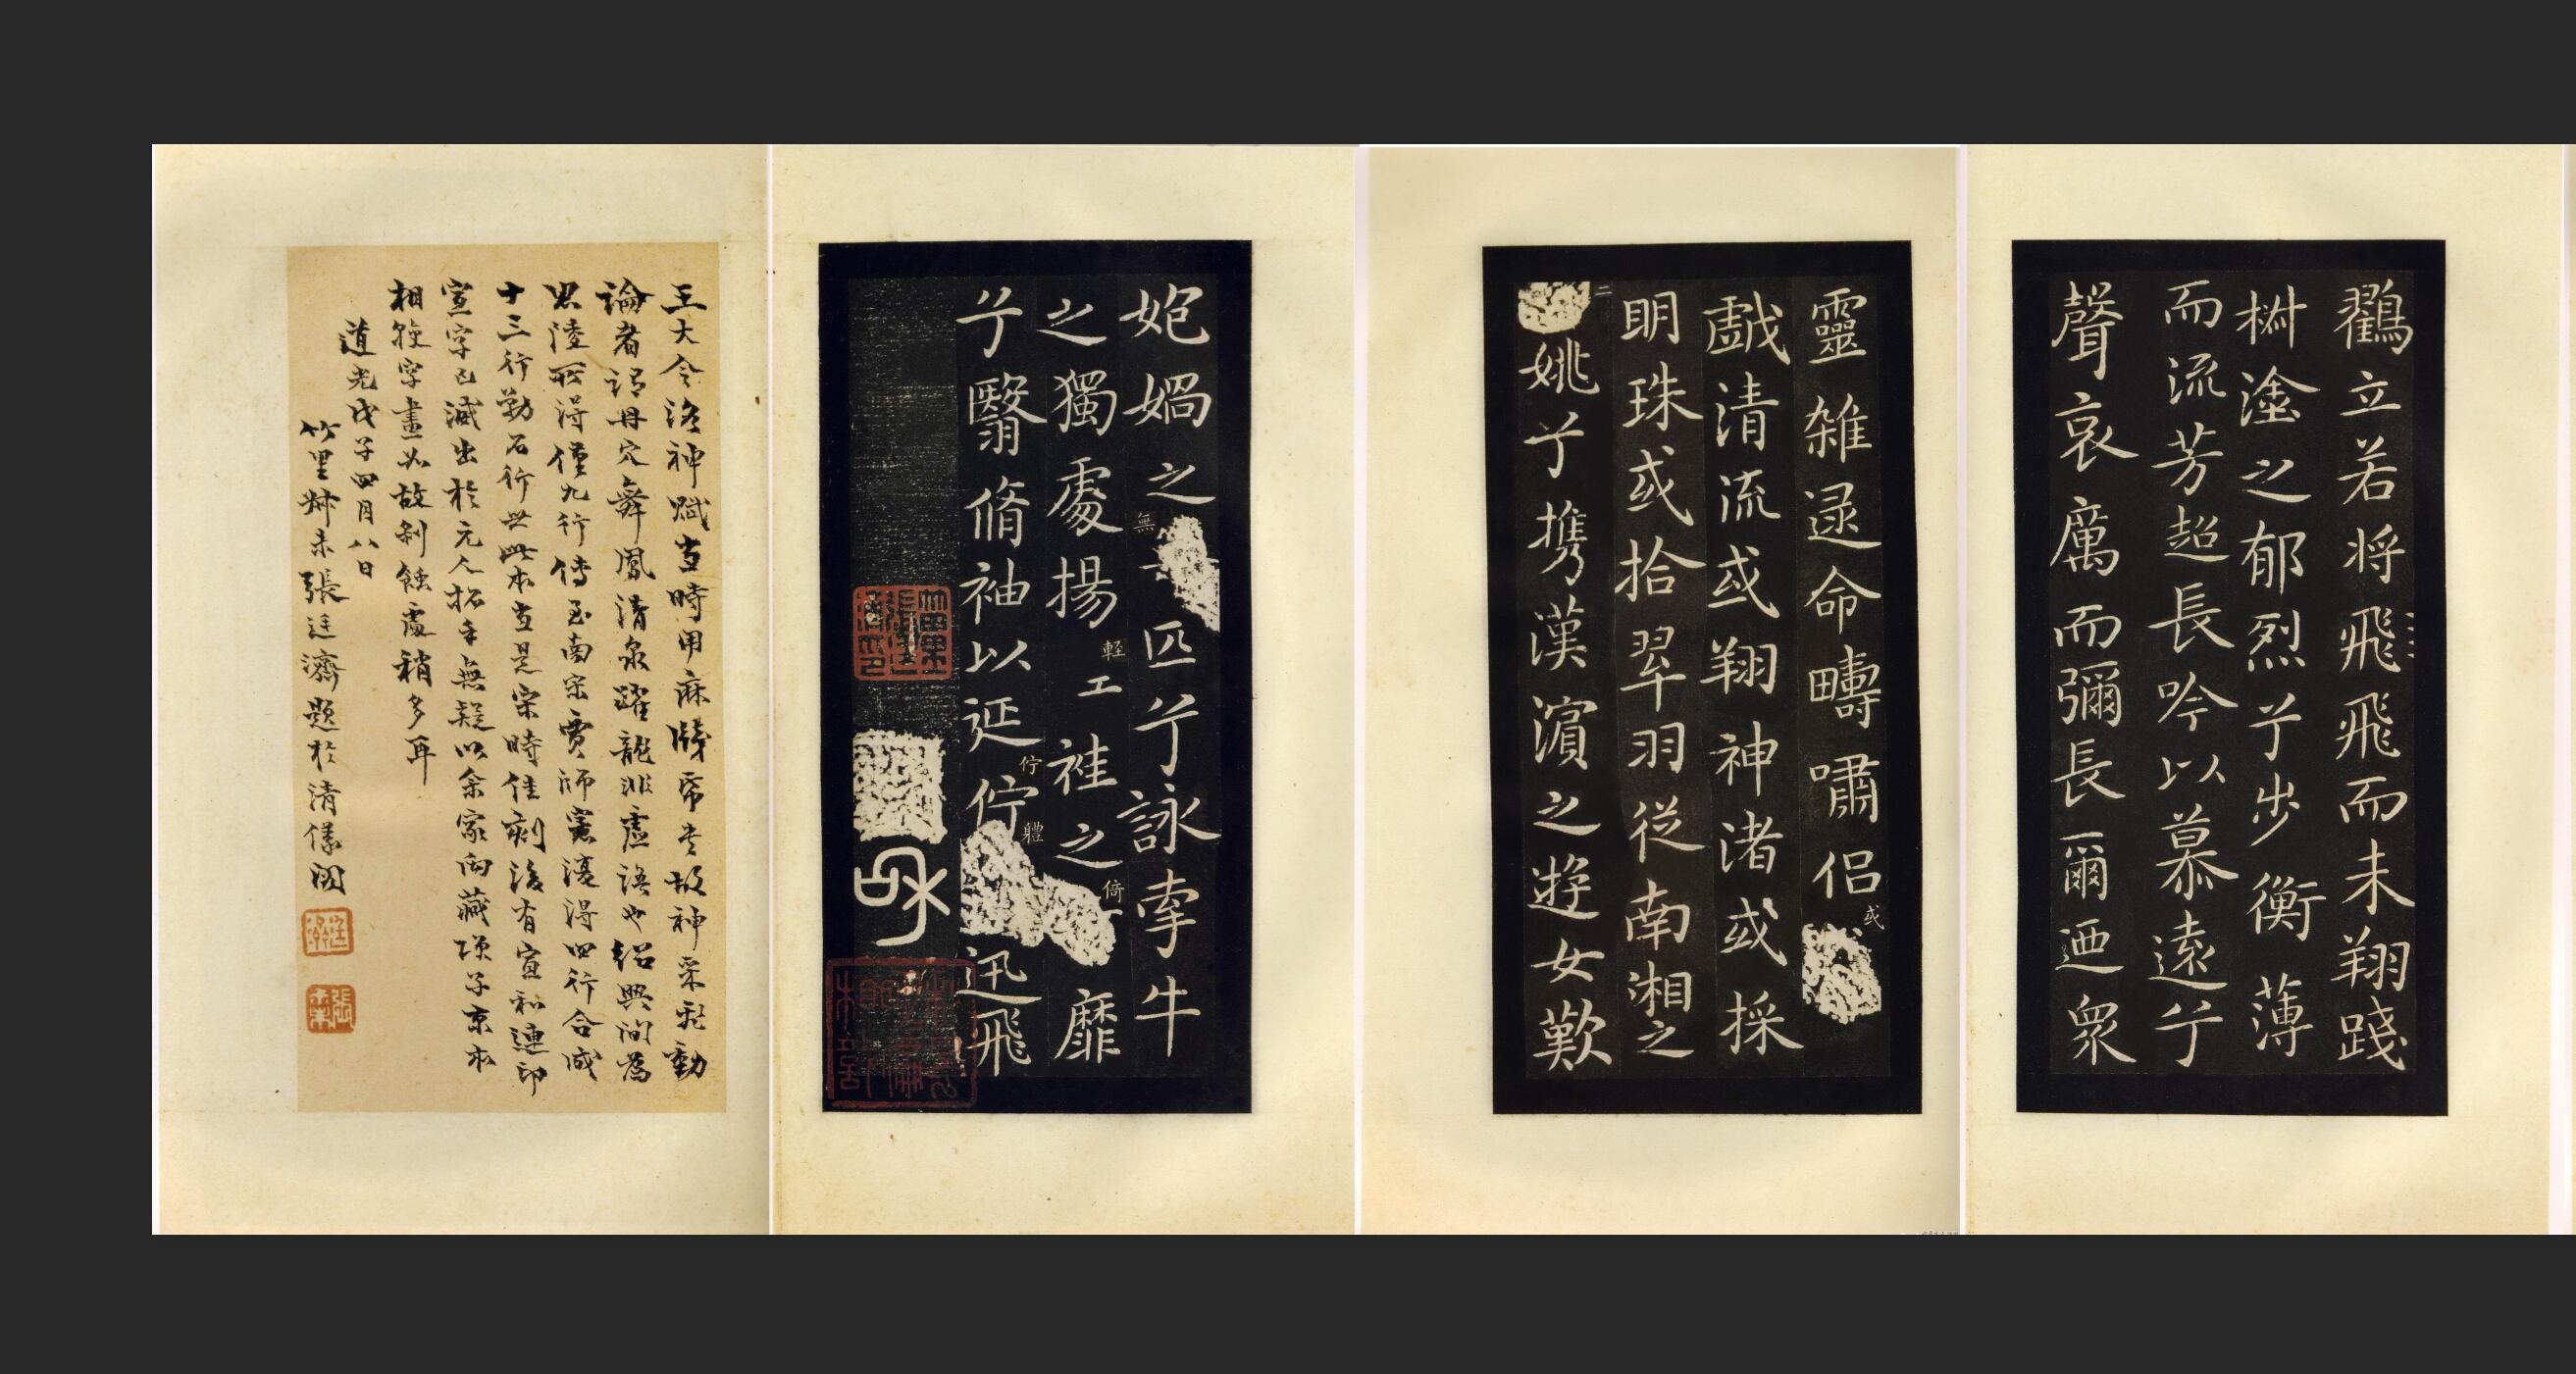 鸖立若将飛飛而未翔踐
樹塗之郁烈兮步衡薄
而流芳超長吟以慕遠兮
聲哀厲而彌長爾迺衆
靈雜遝命疇嘯侶或
戲清流或翔神渚或採
明珠或拾翠羽從南湘之
二姚兮攜漢濱之遊女歎
匏媧之無匹兮詠牽牛
之獨處揚輕袿之倚靡
兮翳脩袖以延佇體迅飛
王大令洛神賦當時用麻牋畫書故神采飛動
論者謂丹穴舞鳳清泉躍龍非虛語也紹興間爲
思陵所得僅九行傳至南宋賈師憲復得四行合成
十三行勒石行世此本當是宋時佳刻後有宣和連印
宣字已減出於元人拓手無疑以余家向藏項子京本
相證字畫如故剝蝕處稍多耳
道光戊子四月八日
竹里叔未張廷濟題於清儀閣